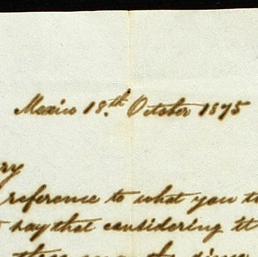 Mexico 18th October 1875
ry
reference to what you to
say that considering it